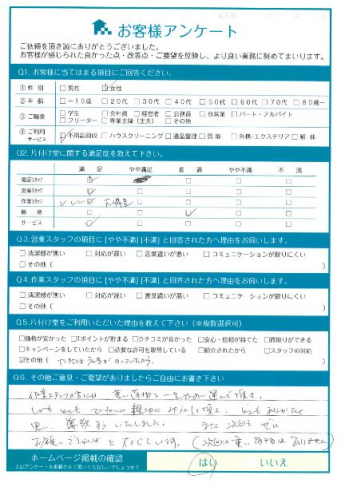 お客様アンケート
ご依頼を頂き誠にありがとうございました。
お客様が感じられた良かった点・改善点・ご要望を反映し、より良い業務に努めてまいります。
Q1. お客様に当てはまる項目にご回答ください。
①性 別 □男性 □女性
②年 齢 □~19歳 □20代 □30代 □40代 □50代 □60代 □70代 □80歳~
③ご職業 □学生 □会社員 □経営者 □公務員 □自営業 □パート・アルバイト
□フリーター □専業主婦(主夫) □その他
④ご利用サービス □不用品回収 □ハウスクリーニング □遺品整理 □買取 □外構・エクステリア □解体
Q2. 片付け堂に関する満足度を教えて下さい。
満 足 やや満足 普 通 やや不満 不 満
電話スタッフ □ □ □ □
営業スタッフ □ □ □ □
作業スタッフ 大満足 □ □ □
価 格 □ □ □ □
サービス □ □ □ □
Q3. 営業スタッフの項目に[やや不満][不満]と回答された方へ理由をお伺いします。
□清潔感が無い □対応が遅い □言葉遣いが悪い □コミュニケーションが取りにくい
□その他( )
Q4. 作業スタッフの項目に[やや不満][不満]と回答された方へ理由をお伺いします。
□清潔感が無い □対応が遅い □言葉遣いが悪い □コミュニケーションが取りにくい
□その他( )
Q5. 片付け堂をご利用いただいた理由を教えて下さい(※複数選択可)
□価格が安かった □Tポイントが貯まる □クチコミが良かった □安心・信頼が持てた □買取りができる
□キャンペーンをしていたから □必要な許可を取得している □紹介されたから □スタッフの対応
□その他( )
Q6. その他ご意見・ご要望がありましたらご自由にお書き下さい
作業スタッフの方には 重い荷物を一生けん命 運んで頂き、
しかも とても ていねいに 親切に 頂き、
思い、感動 いたしました。 また 次回も ぜひ
お願い できれば と
ホームページ掲載の確認
はい いいえ